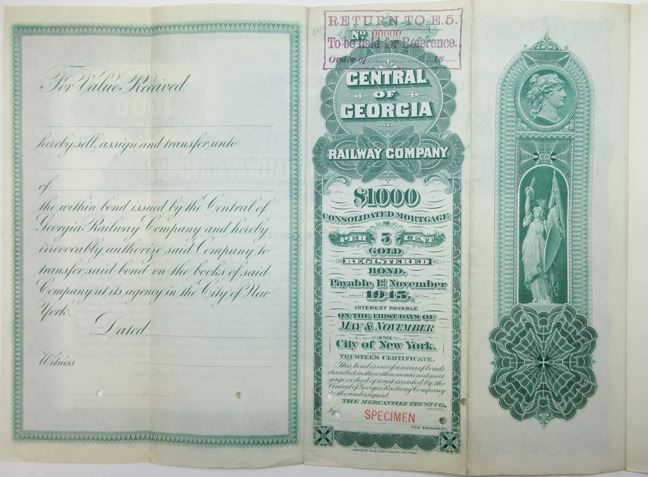 For Value Received
hereby sell, assign and transfer unto
of
the within bond issued by the Central of
Georgia Railway Company and hereby
irrevocably authorize said Company to
transfer said bond on the books of said
Company at its agency in the City of New
York.
Dated
Witness
RETURN TO E.5.
No 00000
To be held for Reference.
Order of
18
CENTRAL
OF
GEORGIA
RAILWAY COMPANY
$1000
CONSOLIDATED MORTGAGE
PER 5 CENT
GOLD
REGISTERED
BOND.
Payable 1st November
1945.
INTEREST PAYABLE
ON THE FIRST DAYS OF
MAY & NOVEMBER
IN THE
City of New York.
TRUSTEE'S CERTIFICATE.
This bond is one of a series of bonds
described in the within mentioned mort-
gage or deed of trust executed by the
Central of Georgia Railway Company
to the undersigned.
THE MERCANTILE TRUST CO.
by
SPECIMEN
VICE PRESIDENT.